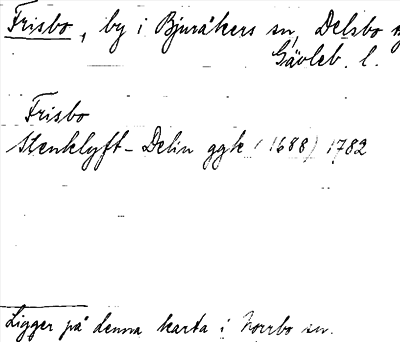 Frisbo, by i Bjuråkers sn, Delsbo
Gävleb. l.
Frisbo
Stenklyft - Delin ggk (1688) 1782
Ligger på denna karta i Norrbo sn.